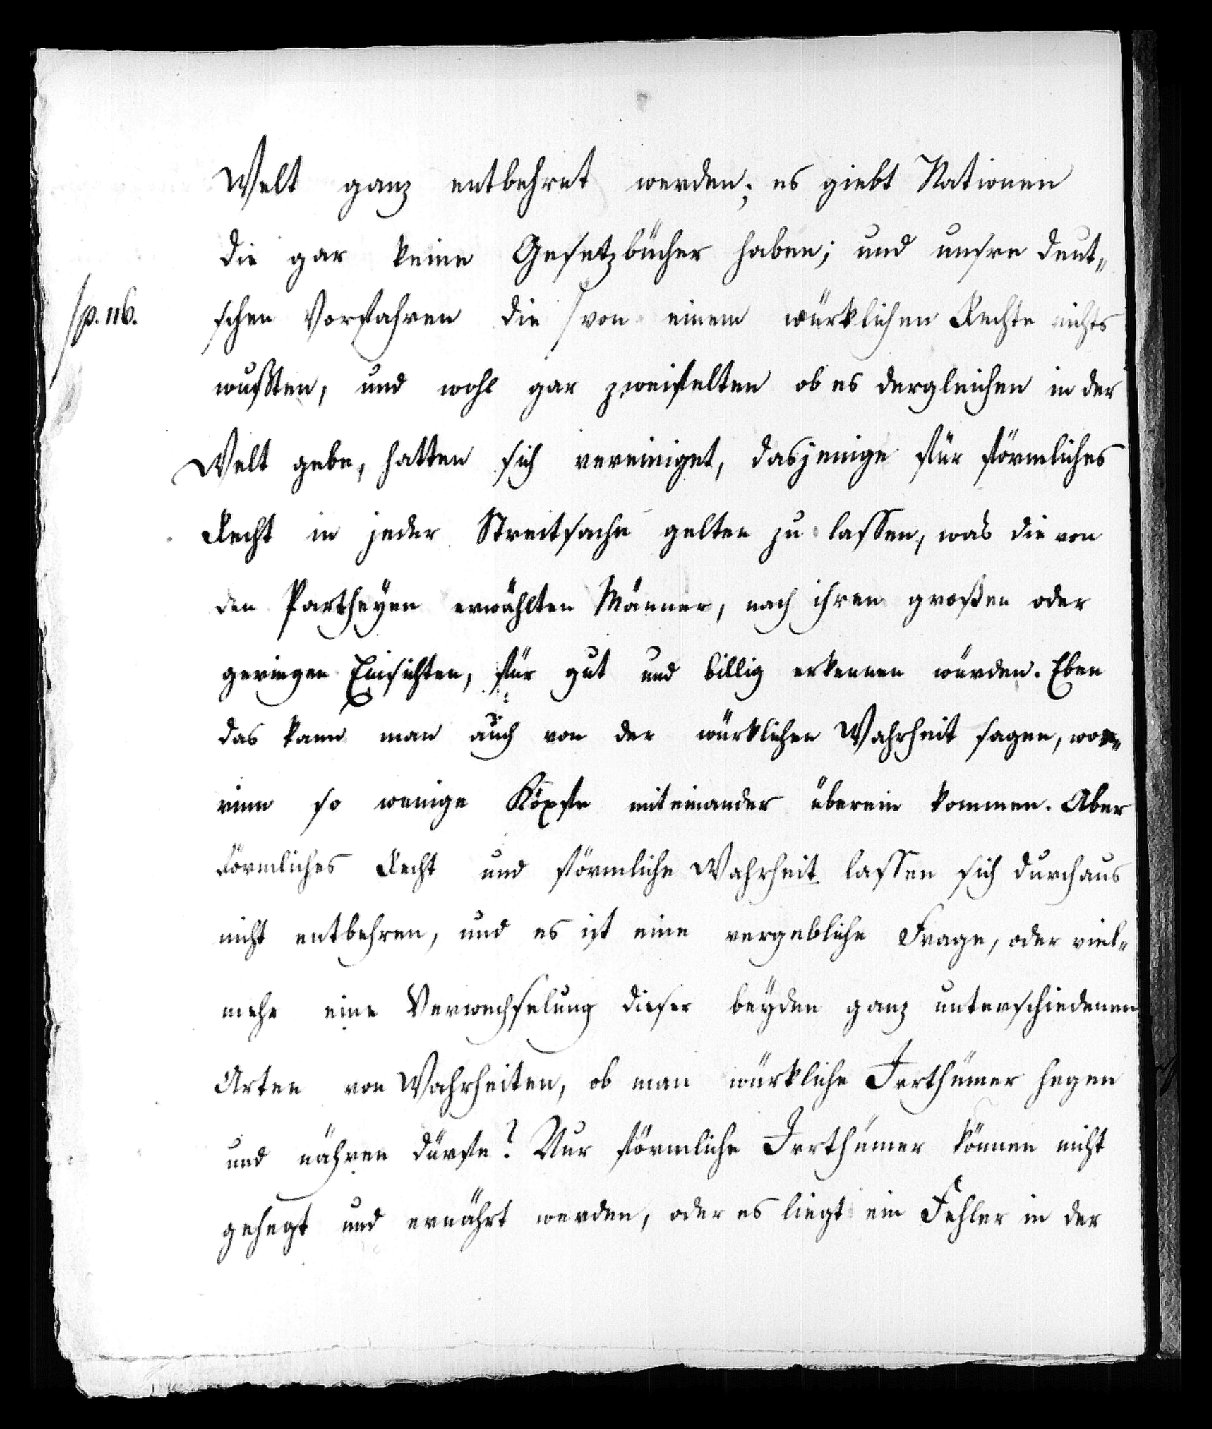 Welt ganz entbehret werden; es giebt Nationen
die gar keine Gesetzbücher haben; und unsre deut-
/p. 116.
schen Vorfahren die /von einem würklichen Rechte nichts
wußten, und wohl gar zweifelten ob es dergleichen in der
Welt gebe, hatten sich vereiniget, dasjenige für förmliches
Recht in jeder Streitsache gelten zu lassen, was die von
den Partheyen erwählten Männer, nach ihren großen oder
geringen Einsichten, für gut und billig erkennen würden. Eben
das kann man auch von der würklichen Wahrheit sagen, wor-
rinn so wenige Köpfe miteinander überein kommen. Aber
förmliches Recht und förmliche Wahrheit lassen sich durchaus
nicht entbehren, und es ist eine vergebliche Frage, oder viel-
mehr eine Verwechselung dieser beyden ganz unterschiedenen
Arten von Wahrheiten, ob man würkliche Irrthümer hegen
und nähren dürfe? Nur förmliche Irrthümer können nicht
gehegt und ernährt werden, oder es liegt ein Fehler in der